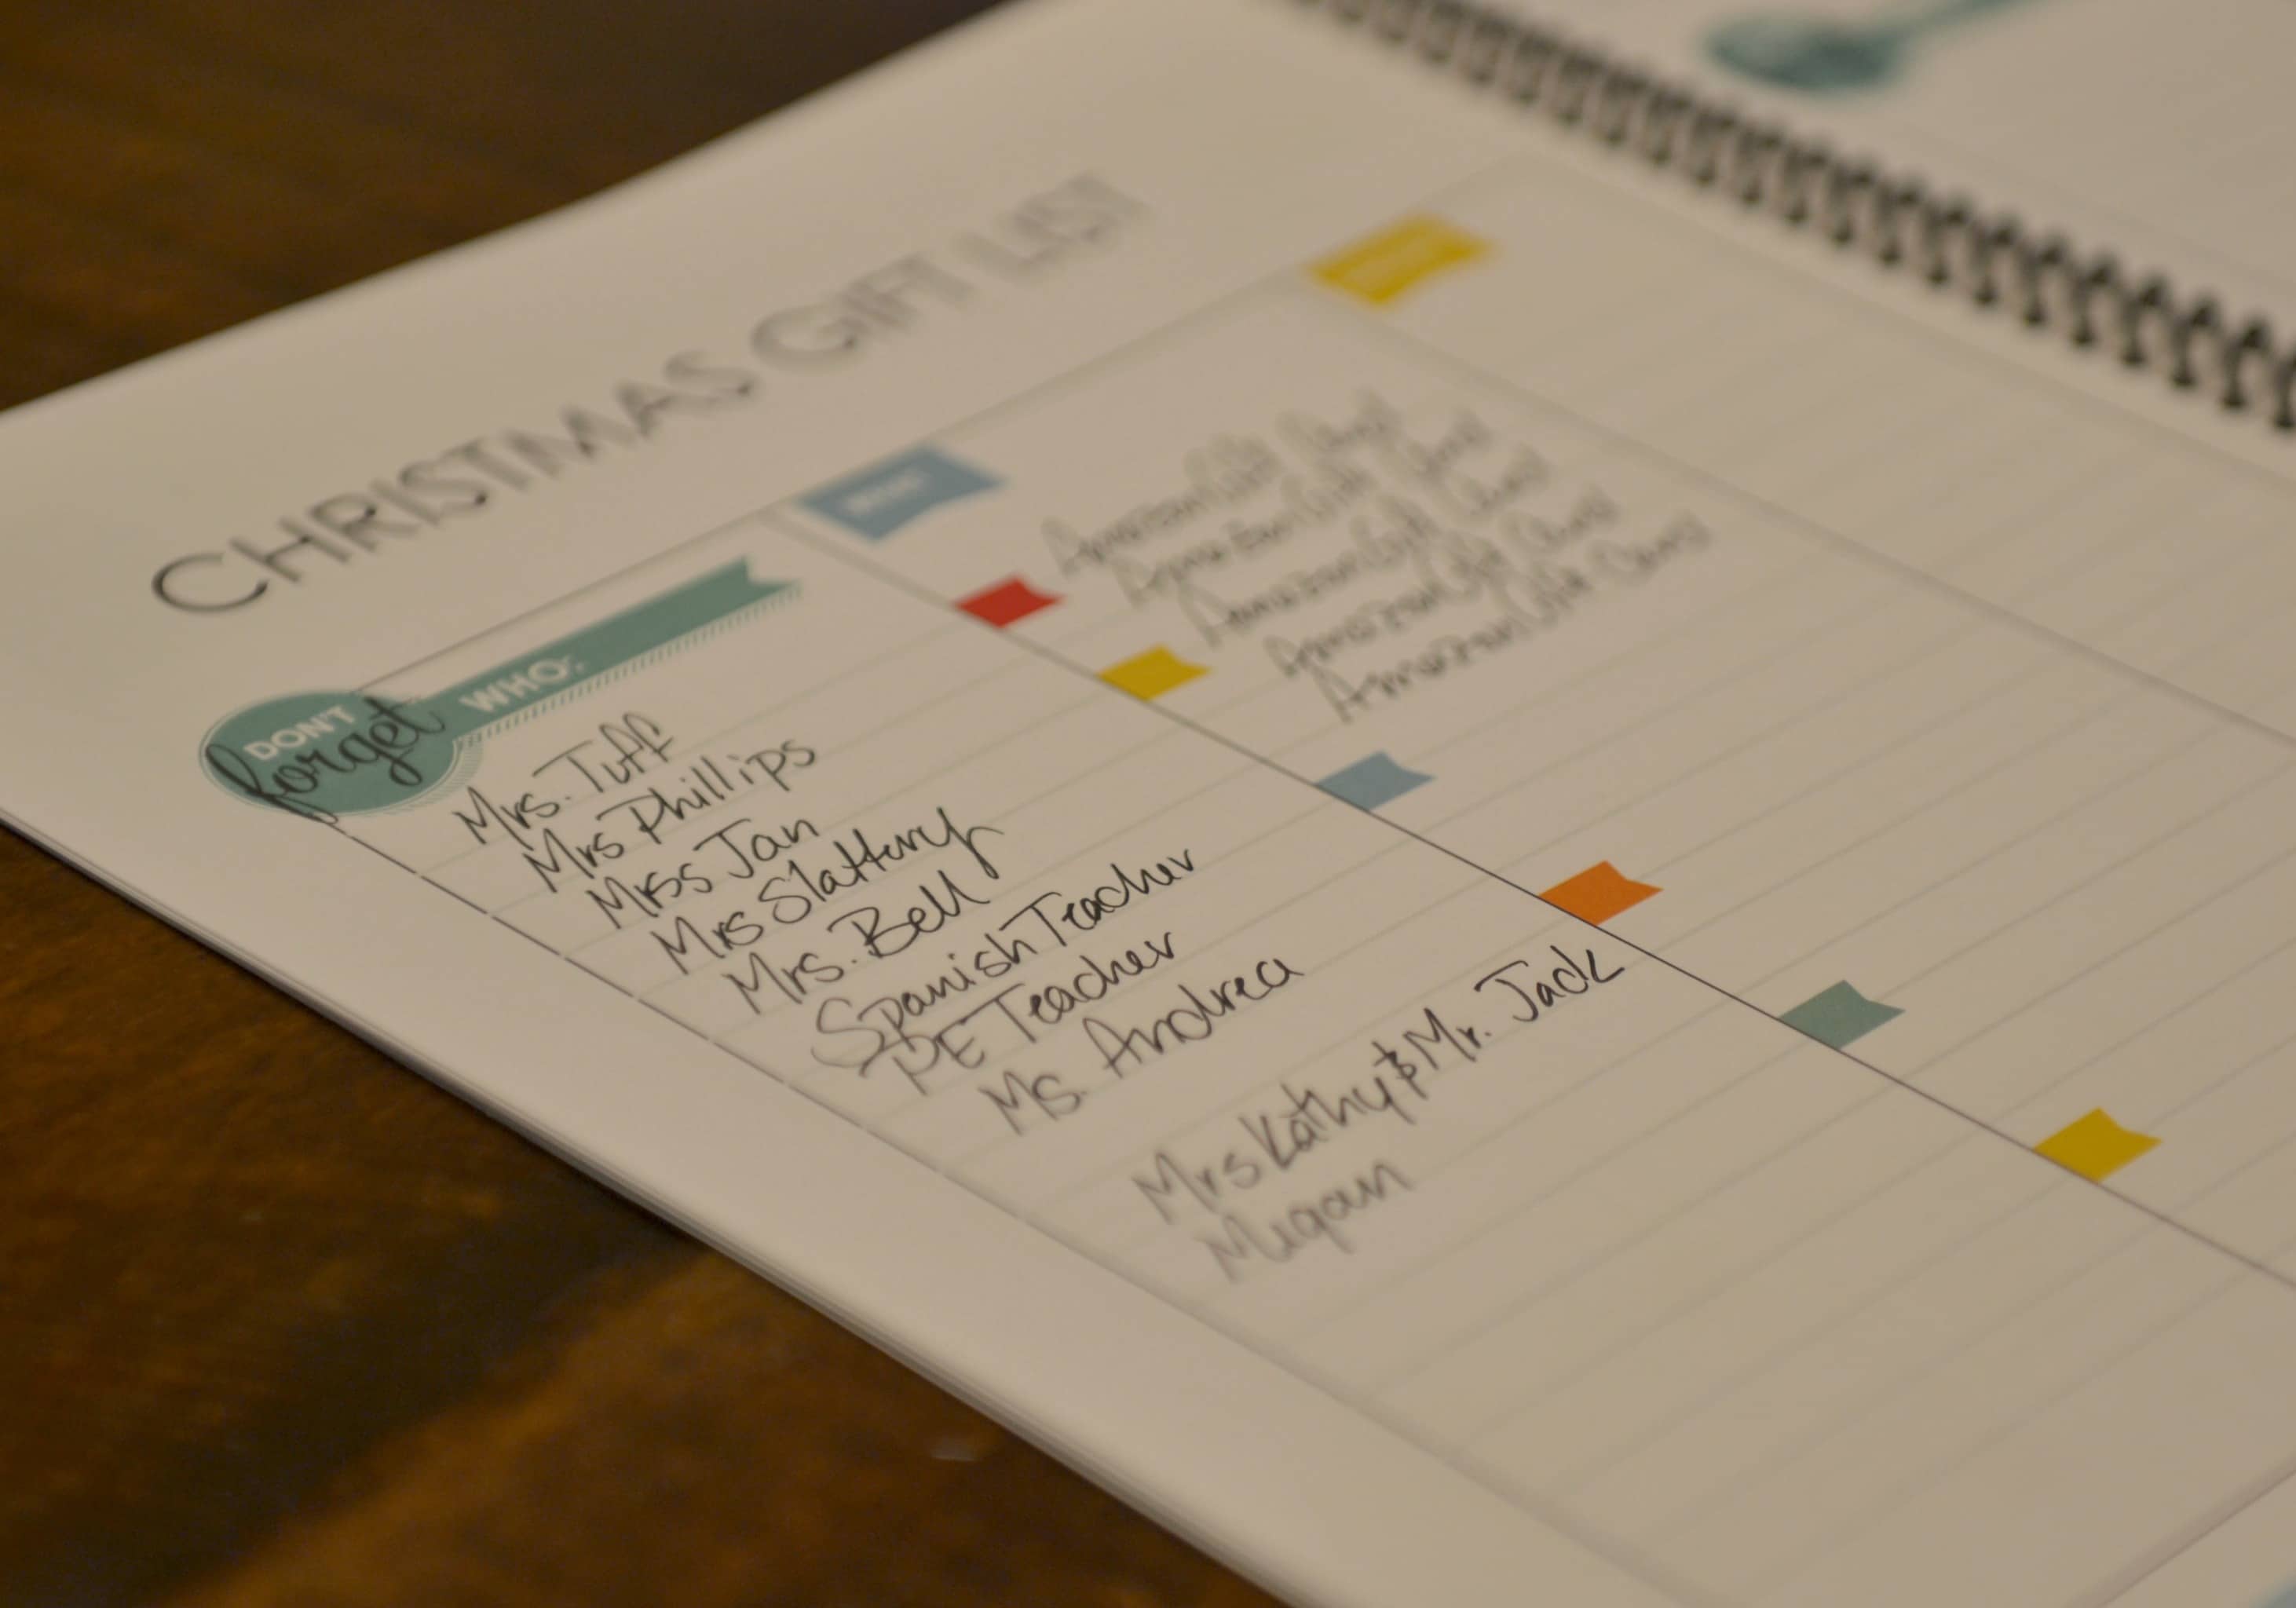 CHRISTMAS GIFT LIST
DON'T
forget
WHO:
WHAT
Mrs. Tuff
Mrs Phillips
Miss Jan
Mrs Slattery
Mrs. Bell
Spanish Teacher
PE Teacher
Ms. Andrea
Mrs Kathy & Mr. Jack
Megan
Amazon Gift Card
Amazon Gift Card
Amazon Gift Card
Amazon Gift Card
Amazon Gift Card